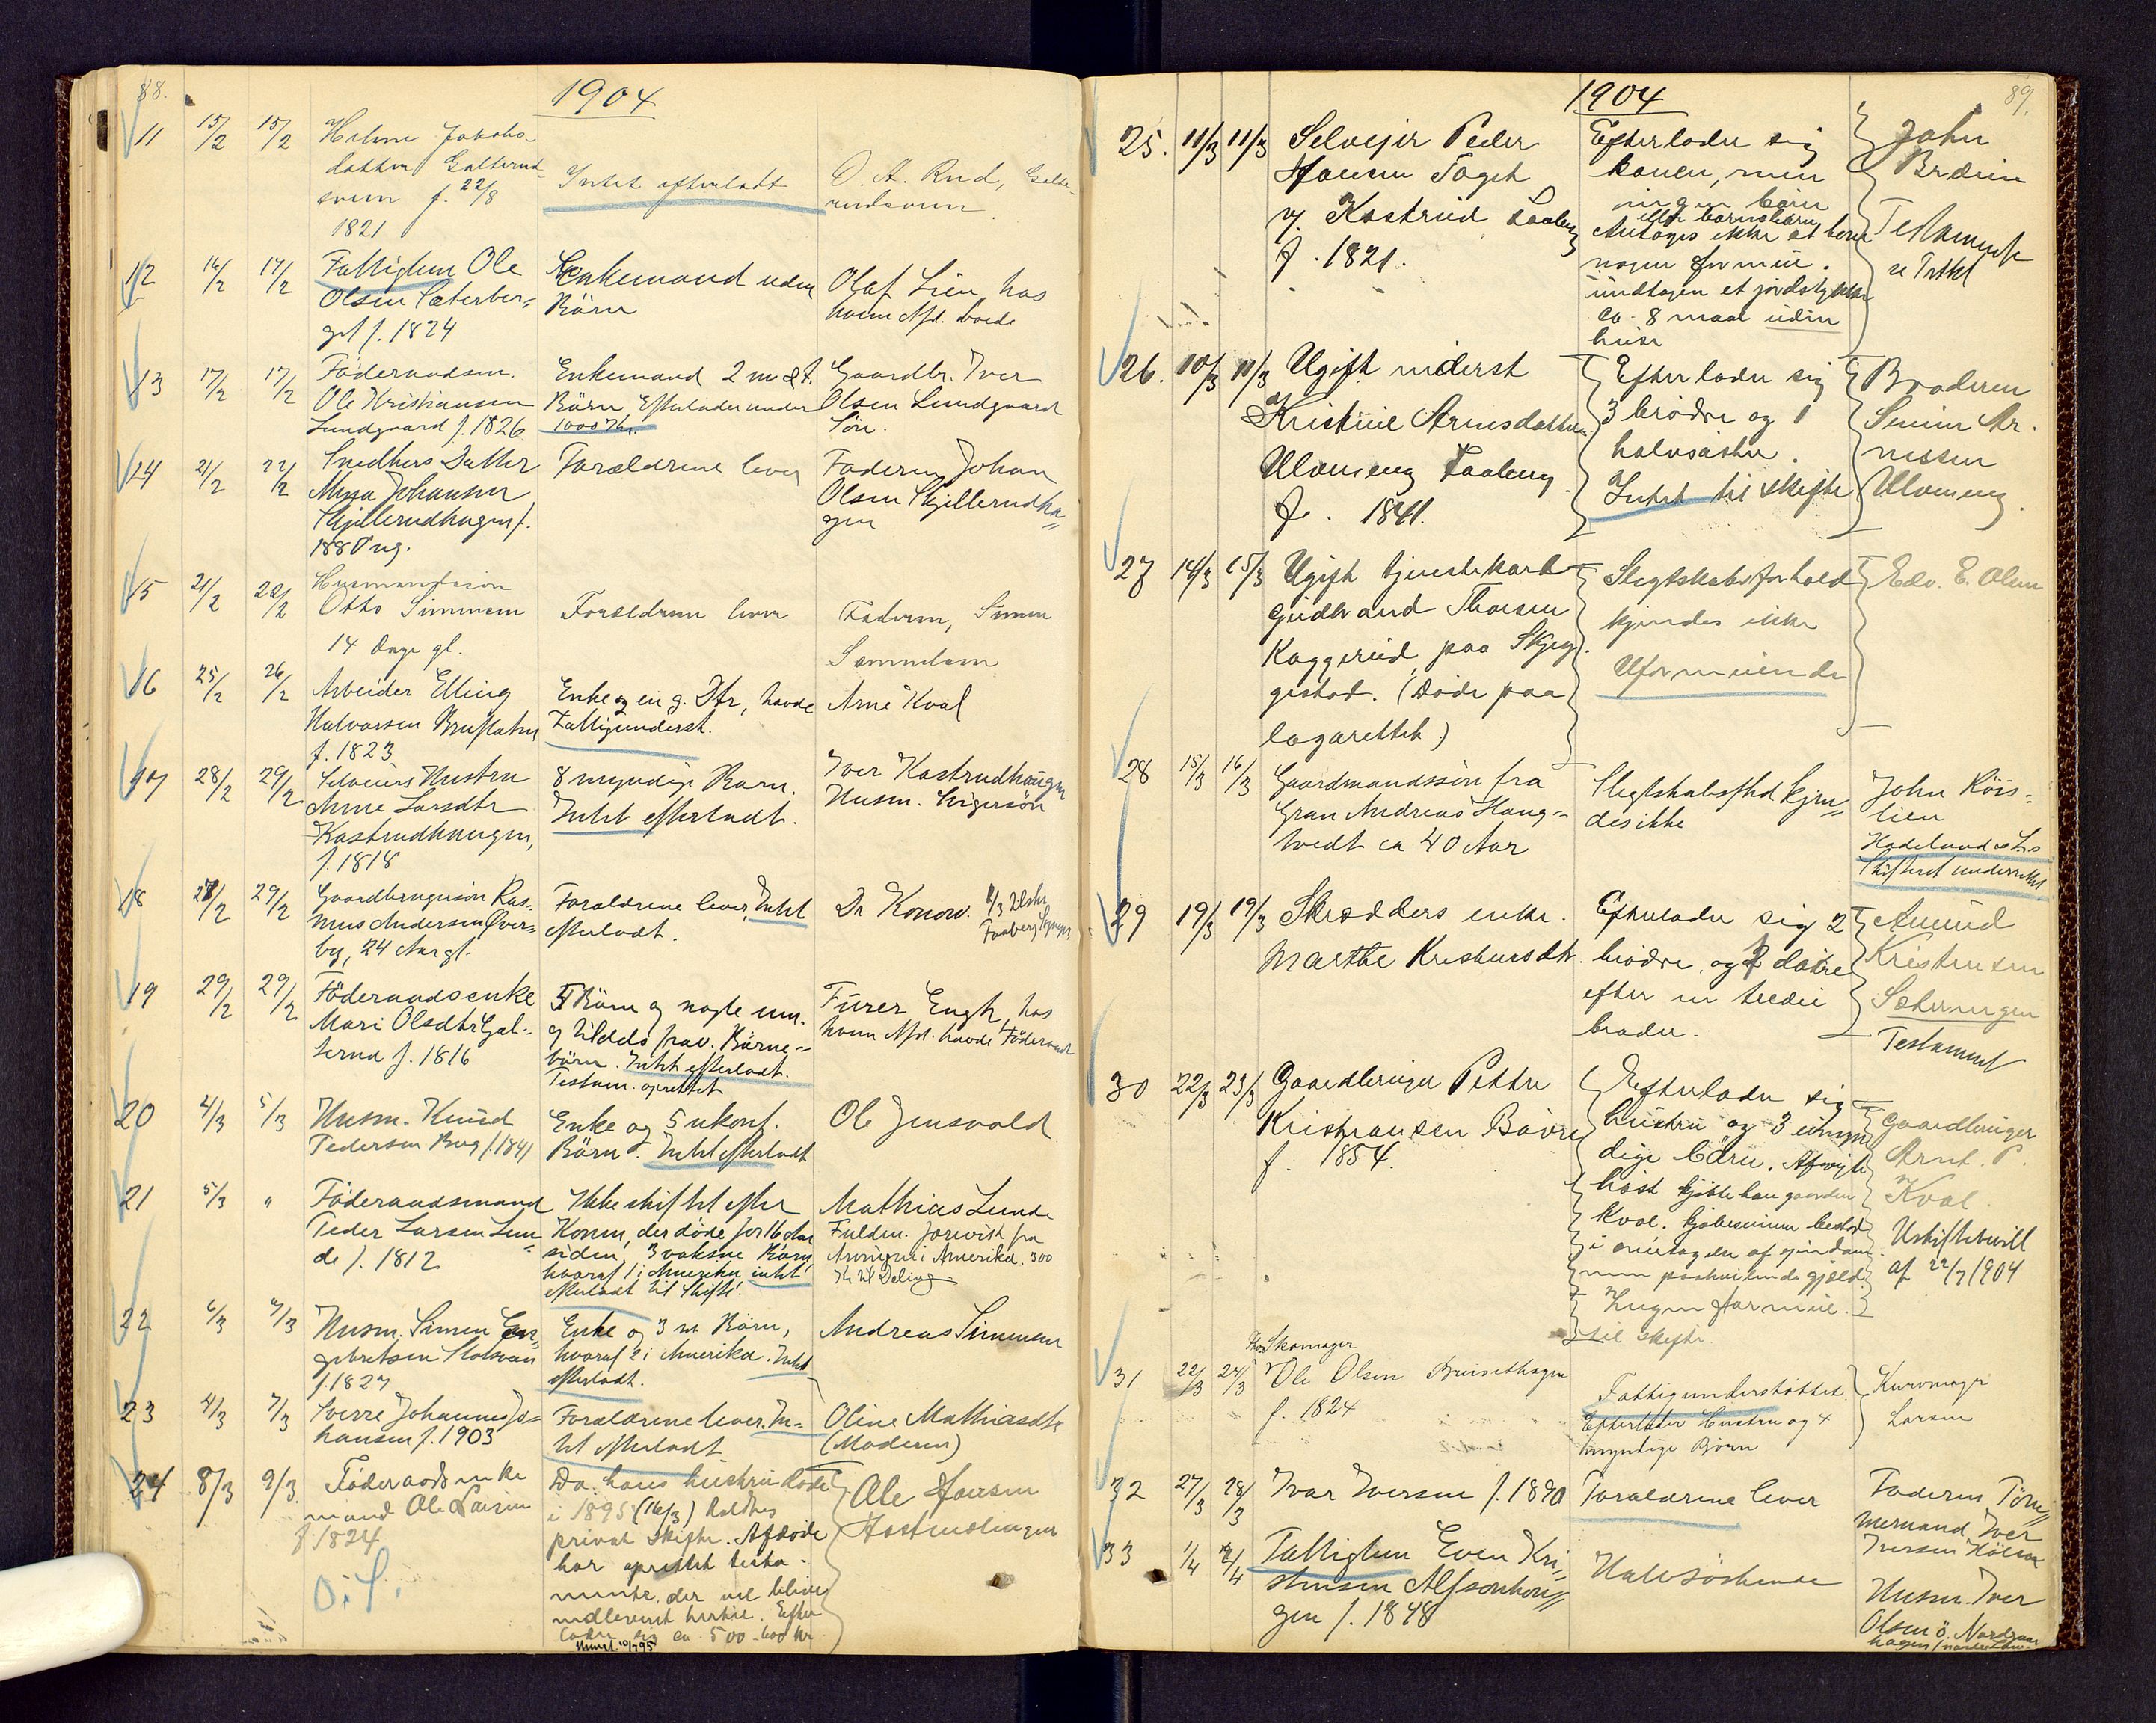 88.
1904
11 15/2 15/2 Helene Jakobs-
datter Galterud
sveen f. 22/8
1821
Intet efterladt
O. A. Rud, Galte-
rudsveen.
12 16/2 17/2 Fattiglem Ole
Olsen Sæterber-
get f. 1824
Enkemand uden
Börn
Olaf Lien, hos
hvem Afd. boede
13 17/2 17/2 Föderaadsm.
Ole Kristiansen
Lundgaard f. 1826
Enkemand 2 m & f.
Börn, Efterlader under
1000 Kr.
Gaardbr. Iver
Olsen Lundgaard
Sön.
14 21/2 22/2 Snedkers Datter
Johansen
Skjellerudhagen f.
188
Forældrene lever
Faderen Johan
Olsen Skjellerudha-
gen
15 21/2 22/2 Husmandssön
Otto Simensen
14 Dage gl.
Forældrene lever
Faderen, Simen
16 25/2 26/2 Arbeider Elling
Halvorsen
f. 1823
Enke og en g. Dtr, havde
Fattigunderst.
Arne Kval
17 28/2 29/2 Selveiers Hustru
Anne Larsdtr
Kastrudhaugen,
f. 1818
8 myndige Barn.
Intet efterladt.
Iver Kastrudhaugen
Husm.
18 27/2 29/2 Gaardbrugersön Ras-
mus Andersen Över-
by, 24 Aar gl.
Forældrene lever, Intet
efterladt.
Dr Konow.
Faaberg
19 29/2 29/2 Föderaadsenke
Mari Olsdtr Gal-
terud f. 1816
5 Börn og nogle um.
og tildels frav. Börne-
börn. Intet efterladt.
Testam. oprettet
Furer Engh, hos
hvem Afd. havde Föderaad
20 4/3 5/3 Husm. Knud
Pedersen Berg f. 1841
Enke og 5 ukonf.
Börn. Intet efterladt
Ole Jensvold
21 5/3 " Föderaadsmand
Peder Larsen Lun-
de f. 1812
Ikke skiftet efter
Konen, der döde for 16 Aar
siden, 3 voksne Börn,
hvoraf 1 i Amerika intet
efterladt til Skifte.
Mathias Lunde
Fuldm. forevist fra
Arvingen i Amerika. 300
Kr til Deling
22 6/3 7/3 Husm. Simen En-
gebretsen
f. 1827
Enke og 3 Börn,
hvoraf 2 i Amerika. Intet
efterladt.
Andreas Simensen
23 4/3 7/3 Sverre Johannes Jo-
hansen f. 1903
Forældrene lever. In-
tet efterladt
Oline Mathiasdtr
(Moderen)
24 8/3 9/3. Föderaadsenke
mand Ole Larsen
f. 1824
O. S.
Da hans hustru døde
i 1895 (16/3) holdtes
privat skifte. Afdöde
har oprettet testa-
mente, der vil blive
indleveret hertil. Efter
lader sig ca 500-600 Kr
Ole Hansen
89.
1904
25. 11/3 11/3 Selvejer Peder
Hansen Toget
v. Kastrud Faaberg
f. 1821.
Efterlader sig
konen, men
ingen börn
eller barnebarn
Antages ikke at have
nogen formue.
undtagen et jordstykke
ca. 8 maal uden
huse
John
Bræin
Testamente
26. 10/3 11/3 Ugift inderst
Kristine Arnesdatter
Ulvmeng Faaberg
f. 1841.
Efterlader sig
3 brödre og 1
halvsöster.
Intet til skifte
Broderen
Simen Ar-
nesen
Ulvmeng.
27 14/3 15/3 Ugift tjenestekarl
Gudbrand Thoesen
Kaggerud, paa Skjeg-
gestad. (Döde paa
lagarettet)
Slegtskabsforhold
kjendes ikke
Uformuende
Edv. E. Olsen
28 15/3 16/3 Gaardmandssön fra
Gran Andreas Haug-
tvedt ca 40 Aar
Slegtskabsfhd kjen-
des ikke
John Röis-
lien
Hadeland & Ls
Skifteret underrettet
29 19/3 19/3 Skrædders enke.
Marthe Kristensdtr.
Efterlader sig 2
brödre, og 2 dötre
efter en tredie
broder.
Amund
Kristensen
Testament
30 22/3 23/3 Gaardbruger Petter
Kristiansen Bövre
f. 1854.
Efterlader sig
hustru og 3 umyn
dige börn. Afvigte
höst kjöbte han gaarden
Kval. Kjöbesummen bestod
i overtagelse af eiendom
men paahvilende gjæld.
Ingen formue
til skifte.
Gaardbruger
Arnt. P.
Kval.
Uskiftebevill
af 22/7 1904
31 22/3 24/3 Skomager
Ole Olsen
f. 1824
Fattigunderstöttet
Efterlader Hustru og 4
myndige Börn
Kurvmager
Larsen
32 27/3 28/3 Ivar Iversen f. 1890
Forældrene lever
Faderen, Töm-
mermand Iver
Iversen
33 1/4 2/4 Fattiglem Even Kri-
stensen Alfsonhau-
gen f. 1848
Halvsöskende
Husm. Iver
Olsen